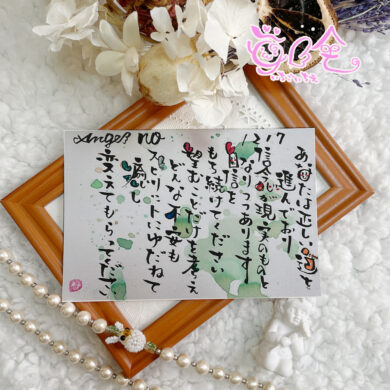 Angel no 217
あなたは正しい道を
進んでおり
信念が現実のものと
なりつつあります
自信を
もち続けてください
望むことだけを考え
どんな不安も
スピリットにゆだねて
癒し
変えてもらってください